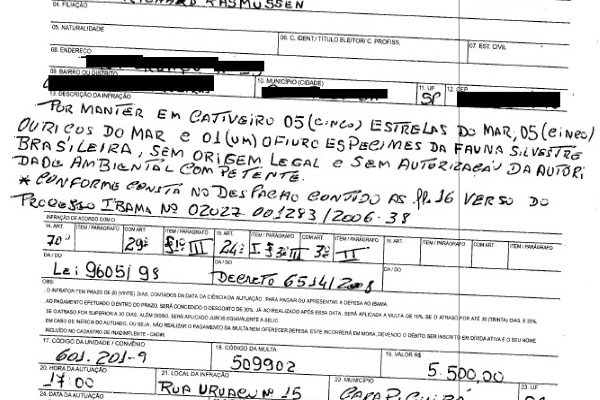 04. FILIAÇÃO
RICHARD RASMUSSEN
05. NATURALIDADE
06. C. IDENT./ TÍTULO ELEITOR/ C. PROFISS.
07. EST. CIVIL
08. ENDEREÇO
09. BAIRRO OU DISTRITO
10. MUNICÍPIO (CIDADE)
11. UF
12. CEP
SP
13. DESCRIÇÃO DA INFRAÇÃO
POR MANTER EM CATIVEIRO 05 (CINCO) ESTRELAS DO MAR, 05 (CINCO)
OURIÇOS DO MAR E 01 (UM) OFIURO ESPECIMES DA FAUNA SILVESTRE
BRASILEIRA, SEM ORIGEM LEGAL E SEM AUTORIZAÇÃO DA AUTORI
DADE AMBIENTAL COMPETENTE.
* CONFORME CONSTA NO DESPACHO CONTIDO AS fl. 16 VERSO DO
PROCESSO IBAMA Nº 02027.001283/2006-38
INFRAÇÃO DE ACORDO COM O
14. ART. ITEM / PARÁGRAFO COM ART. ITEM / PARÁGRAFO 15. ART. ITEM / PARÁGRAFO COM ART. ITEM / PARÁGRAFO 16. ART. ITEM / PARÁGRAFO COM ART. ITEM / PARÁGRAFO
70º 29º §1º III 24º I § 3º III 3º II
DA / DO DA / DO DA / DO
Lei 9605/98 DECRETO 6514/2008
OBS:
O INFRATOR TEM PRAZO DE 20 (VINTE) DIAS, CONTADOS DA DATA DA CIÊNCIA DA AUTUAÇÃO, PARA PAGAR OU APRESENTAR A DEFESA AO IBAMA.
AO PAGAMENTO EFETUADO DENTRO DO PRAZO, SERÁ CONCEDIDO DESCONTO DE 30%. JÁ AO REALIZADO APÓS ESSA DATA, SERÁ APLICADA A MULTA DE 10%, SE O ATRASO FOR ATÉ 30 (TRINTA) DIAS, E 20%
SE O ATRASO FOR SUPERIOR A 30 DIAS. ALÉM DISSO, SERÁ APLICADO JUROS EQUIVALENTE A SELIC.
EM CASO DE INÉRCIA DO AUTUADO, OU SEJA, NÃO REALIZAR O PAGAMENTO DA MULTA NEM OFERECER DEFESA, ESTE INCORRERÁ EM MORA, DEVENDO O DÉBITO SER INSCRITO EM DÍVIDA ATIVA E O SEU NOME
INCLUÍDO NO CADASTRO DE INADIMPLENTE - CADIN.
17. CÓDIGO DA UNIDADE / CONVÊNIO 18. CÓDIGO DA MULTA 19. VALOR R$
601.201-9 509902 5.500,00
20. HORA DA AUTUAÇÃO 21. LOCAL DA INFRAÇÃO 22. MUNICÍPIO 23. UF
17:00 RUA URUAÇU Nº 15 CARAPICUIBA
24. DATA DA AUTUAÇÃO